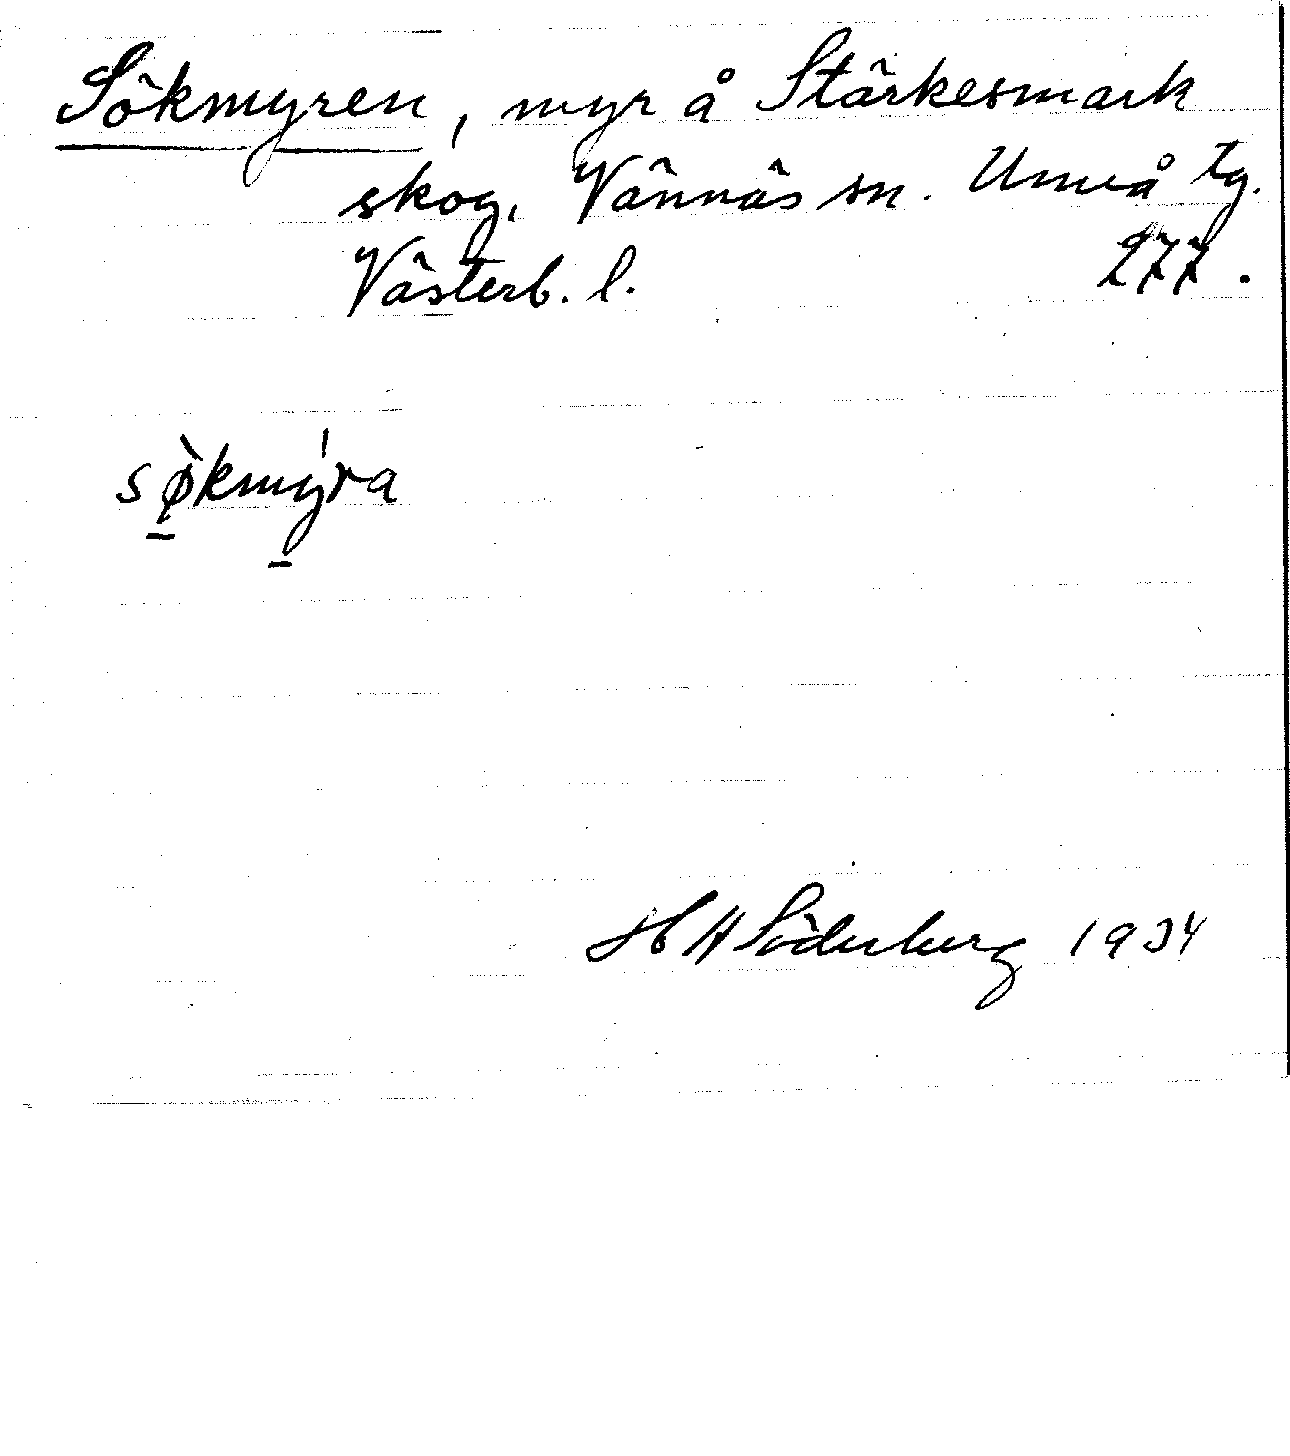 Sökmyren, myr å Stärkesmark
skog, Vännäs sn. Umeå tg.
Västerb. l. 277.
sø̀kmýra
H H Söderberg 1934